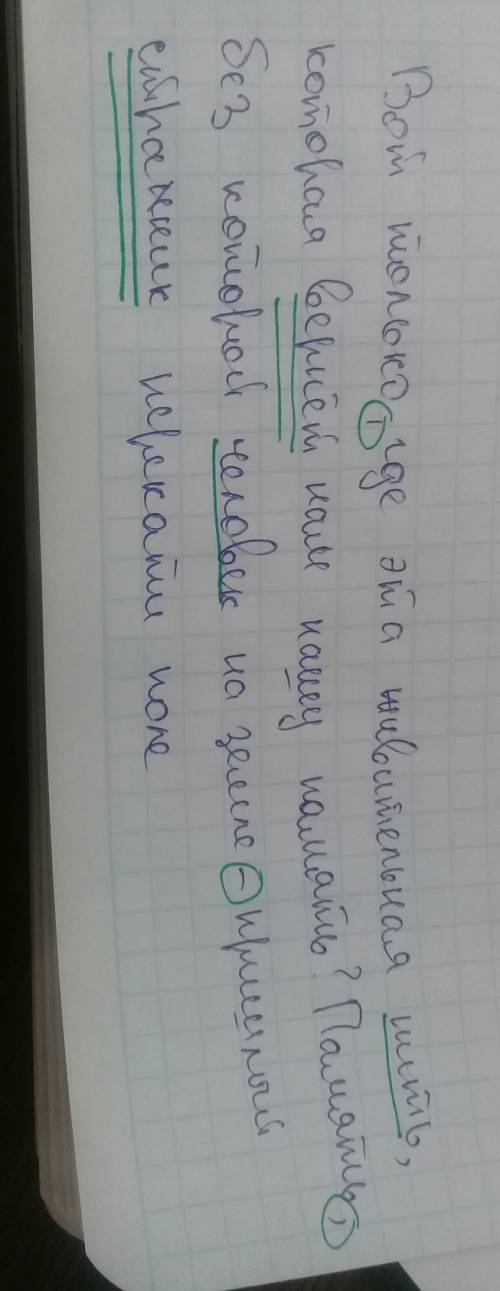 Вот только, где эта живительная нить,
которая вернёт нам нашу память? Память,
без которой человек на земле - пришлый
странник перекати поле